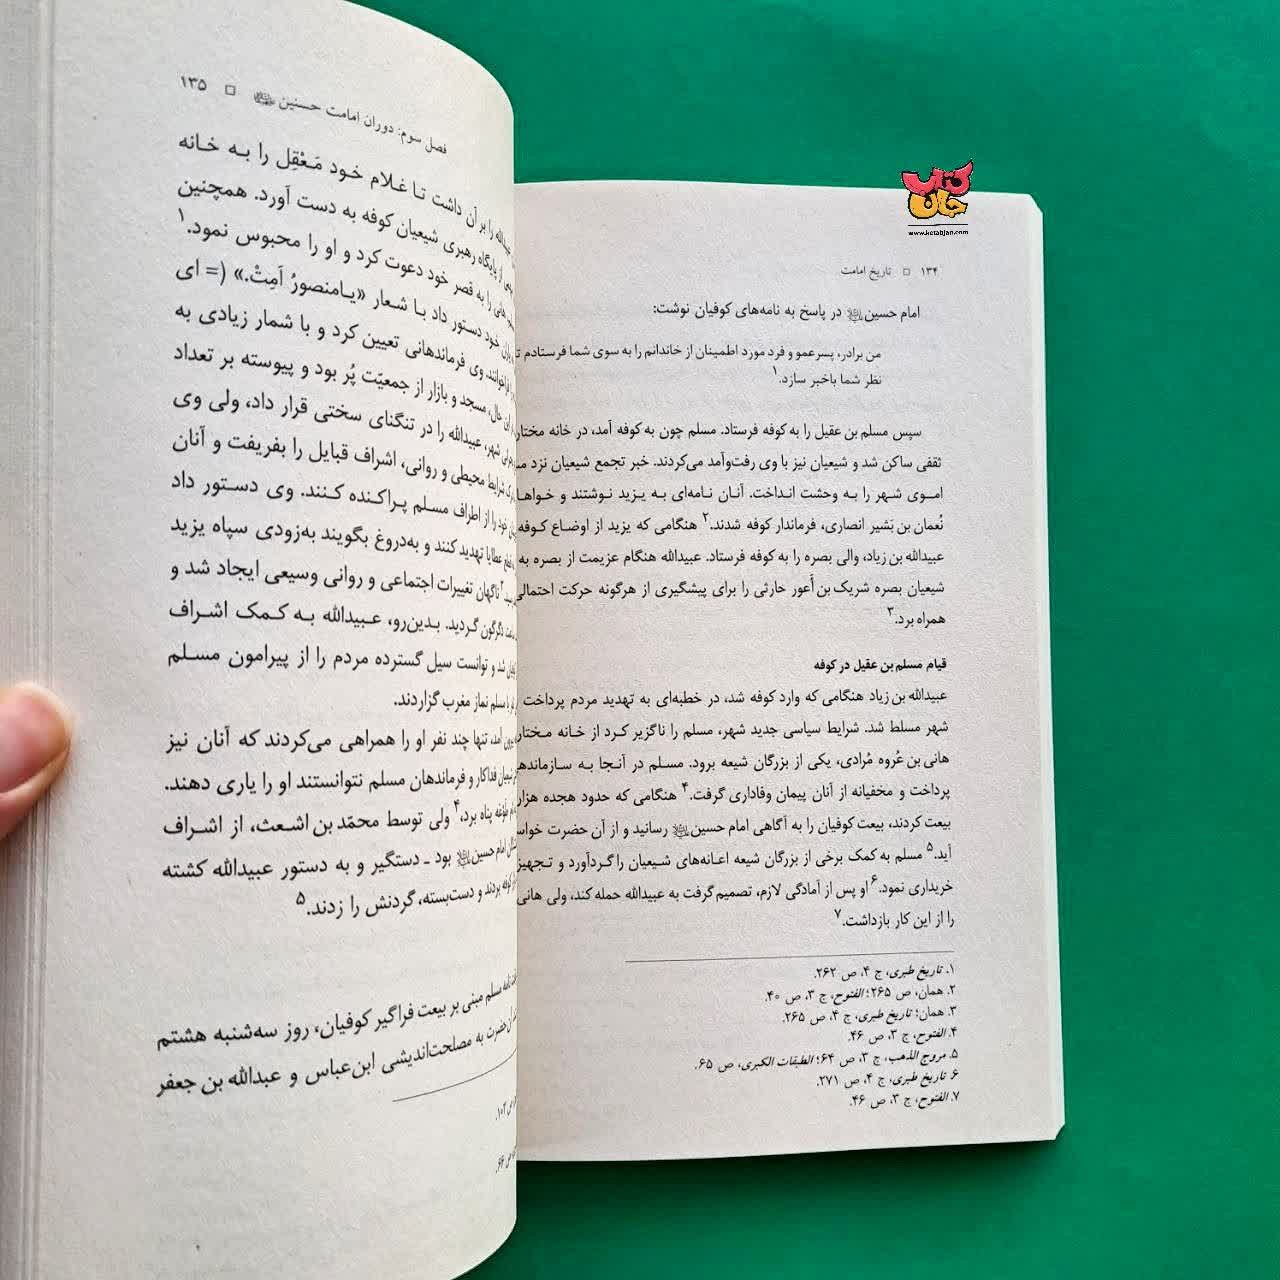 کتاب جان
www.ketabjan.com
۱۳۴ □ تاریخ امامت
امام حسین در پاسخ به نامه‌های کوفیان نوشت:
من برادر، پسرعمو و فرد مورد اطمینان از خاندانم را به سوی شما فرستادم
نظر شما باخبر سازد.۱
سپس مسلم بن عقیل را به کوفه فرستاد. مسلم چون به کوفه آمد، در خانه مختار
ثقفی ساکن شد و شیعیان نیز با وی رفت‌وآمد می‌کردند. خبر تجمع شیعیان نزد
اموی شهر را به وحشت انداخت. آنان نامه‌ای به یزید نوشتند و
نُعمان بن بَشیر انصاری، فرماندار کوفه شدند.۲ هنگامی که یزید از اوضاع کوفه
عبیدالله بن زیاد، والی بصره را به کوفه فرستاد. عبیدالله هنگام عزیمت از بصره به
شیعیان بصره شریک بن أعور حارثی را برای پیشگیری از هرگونه حرکت احتمالی
همراه برد.۳
قیام مسلم بن عقیل در کوفه
عبیدالله بن زیاد هنگامی که وارد کوفه شد، در خطبه‌ای به تهدید مردم پرداخت
شهر مسلط شد. شرایط سیاسی جدید شهر، مسلم را ناگزیر کرد از خانه مختار
هانی بن عُروه مُرادی، یکی از بزرگان شیعه برود. مسلم در آنجا به
پرداخت و مخفیانه از آنان پیمان وفاداری گرفت.۴ هنگامی که حدود هجده هزار
بیعت کردند، بیعت کوفیان را به آگاهی امام حسین رسانید و از آن حضرت
آید.۵ مسلم به کمک برخی از بزرگان شیعه اعانه‌های شیعیان را گردآورد و
خریداری نمود.۶ او پس از آمادگی لازم، تصمیم گرفت به عبیدالله حمله کند، ولی هانی
را از این کار بازداشت.۷
۱. تاریخ طبری، ج ۴، ص ۲۶۲.
۲. همان، ص ۲۶۵؛ الفتوح، ج ۳، ص ۴۰.
۳. همان؛ تاریخ طبری، ج ۴، ص ۲۶۵.
۴. الفتوح، ج ۳، ص ۴۶.
۵. مروج الذهب، ج ۳، ص ۶۴؛ الطبقات الکبری، ص ۶۵.
۶. تاریخ طبری، ج ۴، ص ۲۷۱.
۷. الفتوح، ج ۳، ص ۴۶.
فصل سوم: دوران امامت حسنین □ ۱۳۵
را بر آن داشت تا غلام خود مَعْقِل را به خانه
از پایگاه رهبری شیعیان کوفه به دست آورد. همچنین
را به قصر خود دعوت کرد و او را محبوس نمود.۱
خود دستور داد با شعار «یامنصورُ اَمِتْ.» (= ای
فراخوانند. وی فرماندهانی تعیین کرد و با شمار زیادی به
این حال، مسجد و بازار از جمعیّت پُر بود و پیوسته بر تعداد
شهر، عبیدالله را در تنگنای سختی قرار داد، ولی وی
شرایط محیطی و روانی، اشراف قبایل را بفریفت و آنان
خود را از اطراف مسلم پراکنده کنند. وی دستور داد
قطع عطایا تهدید کنند و به‌دروغ بگویند به‌زودی سپاه یزید
ناگهان تغییرات اجتماعی و روانی وسیعی ایجاد شد و
دگرگون گردید. بدین‌رو، عبیدالله به کمک اشراف
شد و توانست سیل گسترده مردم را از پیرامون مسلم
با مسلم نماز مغرب گزاردند.
آمد، تنها چند نفر او را همراهی می‌کردند که آنان نیز
شیعیان فداکار و فرماندهان مسلم نتوانستند او را یاری دهند.
طوعه پناه برد،۴ ولی توسط محمّد بن اشعث، از اشراف
امام حسین بود ـ دستگیر و به دستور عبیدالله کشته
کوفه بردند و دست‌بسته، گردنش را زدند.۵
نامه مسلم مبنی بر بیعت فراگیر کوفیان، روز سه‌شنبه هشتم
آن حضرت به مصلحت‌اندیشی ابن‌عباس و عبدالله بن جعفر
ص ۱۰۲.
ص ۶۶.